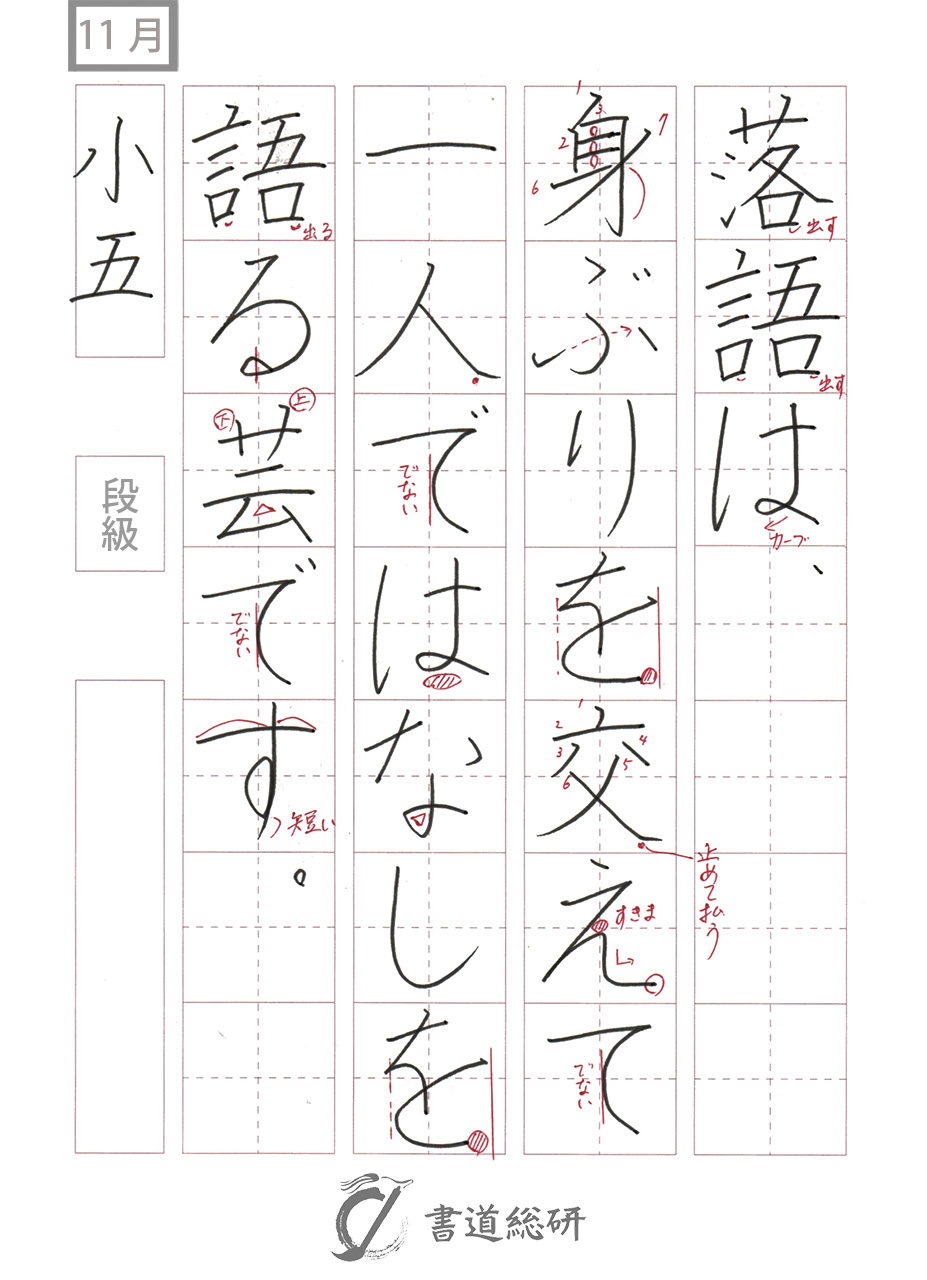 11月
落語は、
身ぶりを交えて
一人ではなしを
語る芸です。
小五
段級
出す
出す
カーブ
1
2
3
6
7
1
2
3
4
5
6
止めて払う
すきま
でない
でない
出る
下
上
でない
短い
書道総研